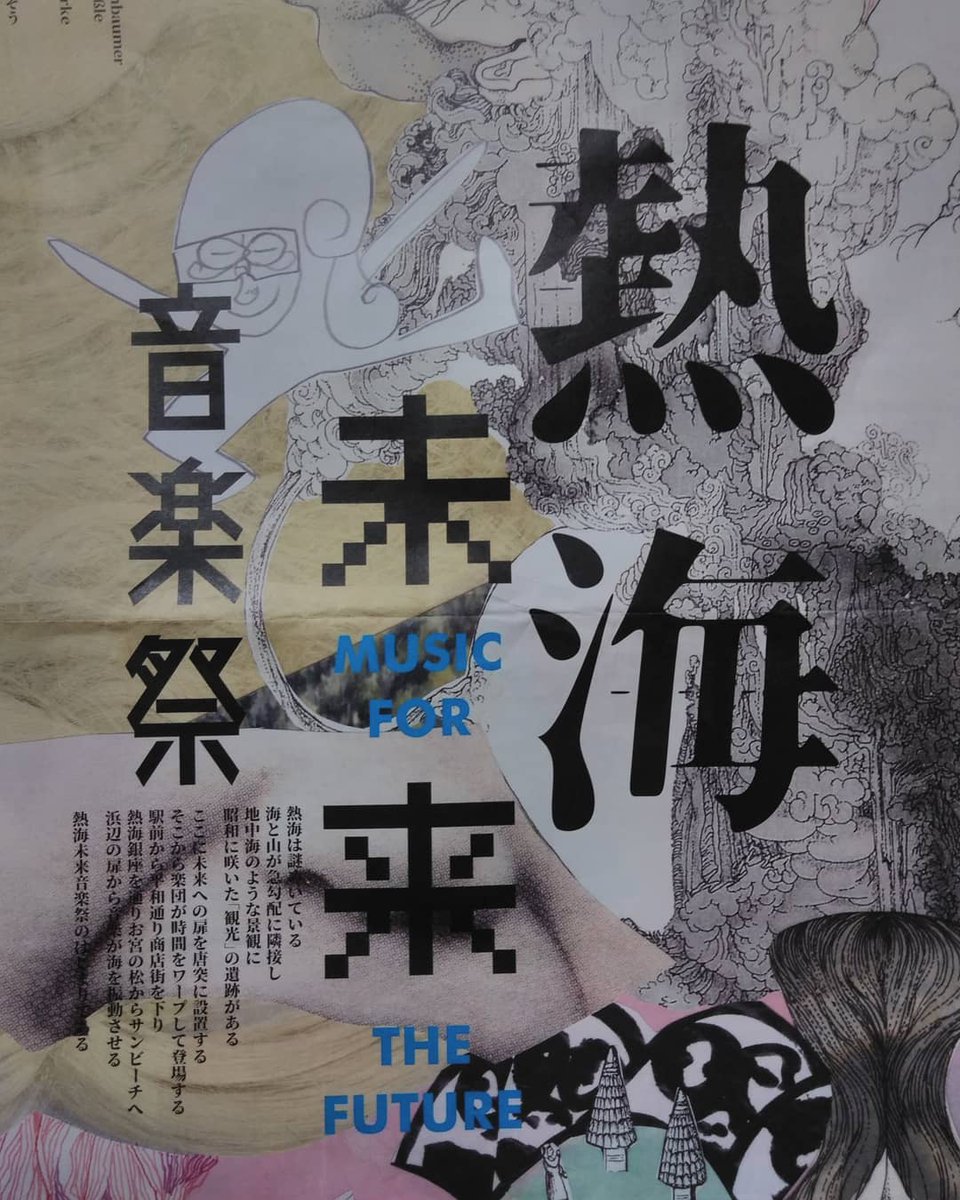 nbaumer
ßle
rke
熱海
未来
音楽祭
MUSIC
FOR
THE
FUTURE
熱海は謎めいている
海と山が急勾配に隣接し
地中海のような景観に
昭和に咲いた「観光」の遺跡がある
ここに未来への扉を唐突に設置する
そこから楽団が時間をワープして登場する
駅前から平和通り商店街を下り
熱海銀座を通りお宮の松からサンビーチへ
浜辺の扉から音楽が海を振動させる
熱海未来音楽祭のはじまりである